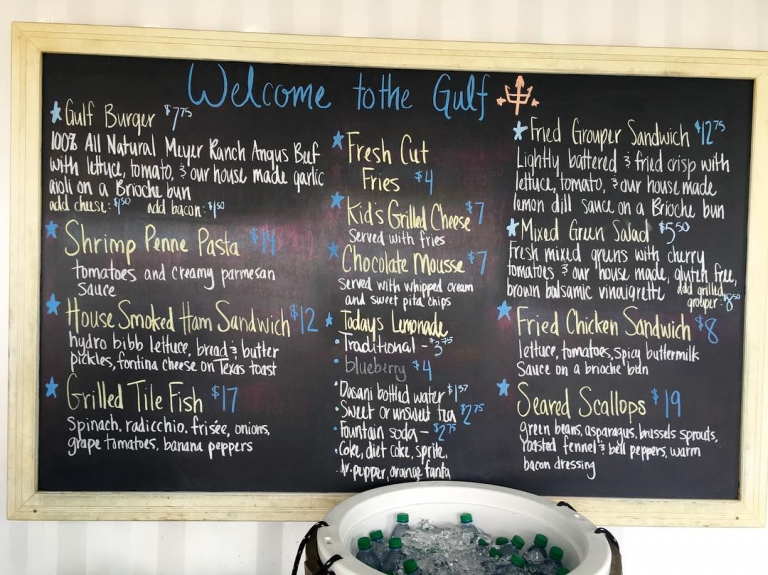 Welcome to the Gulf
Gulf Burger $7.75
100% All Natural Meyer Ranch Angus Beef
with lettuce, tomato, & our house made garlic
aioli on a Brioche bun
add cheese: $1.50 add bacon: $1.50
Shrimp Penne Pasta $14
tomatoes and creamy parmesan
sauce
House Smoked Ham Sandwich $12
hydro bibb lettuce, bread & butter
pickles, fontina cheese on Texas toast
Grilled Tile Fish $17
Spinach, radicchio, frisée, onions,
grape tomatoes, banana peppers
Fresh Cut
Fries $4
Kid's Grilled Cheese $7
Served with fries
Chocolate Mousse $7
Served with whipped cream
and sweet pita chips
Todays Lemonade
Traditional - $3.75
blueberry $4
Dasani bottled water $1.57
Sweet or unsweet tea $2.75
Fountain soda - $2.75
Coke, diet coke, sprite,
dr. pepper, orange fanta
Fried Grouper Sandwich $12.75
Lightly battered & fried crisp with
lettuce, tomato, & our house made
lemon dill sauce on a Brioche bun
Mixed Green Salad $5.50
Fresh mixed greens with cherry
tomatoes & our house made, gluten free,
brown balsamic vinaigrette add grilled
grouper: $8.50
Fried Chicken Sandwich $8
lettuce, tomatoes, spicy buttermilk
Sauce on a brioche bun
Seared Scallops $19
green beans, asparagus, brussels sprouts,
roasted fennel & bell peppers, warm
bacon dressing